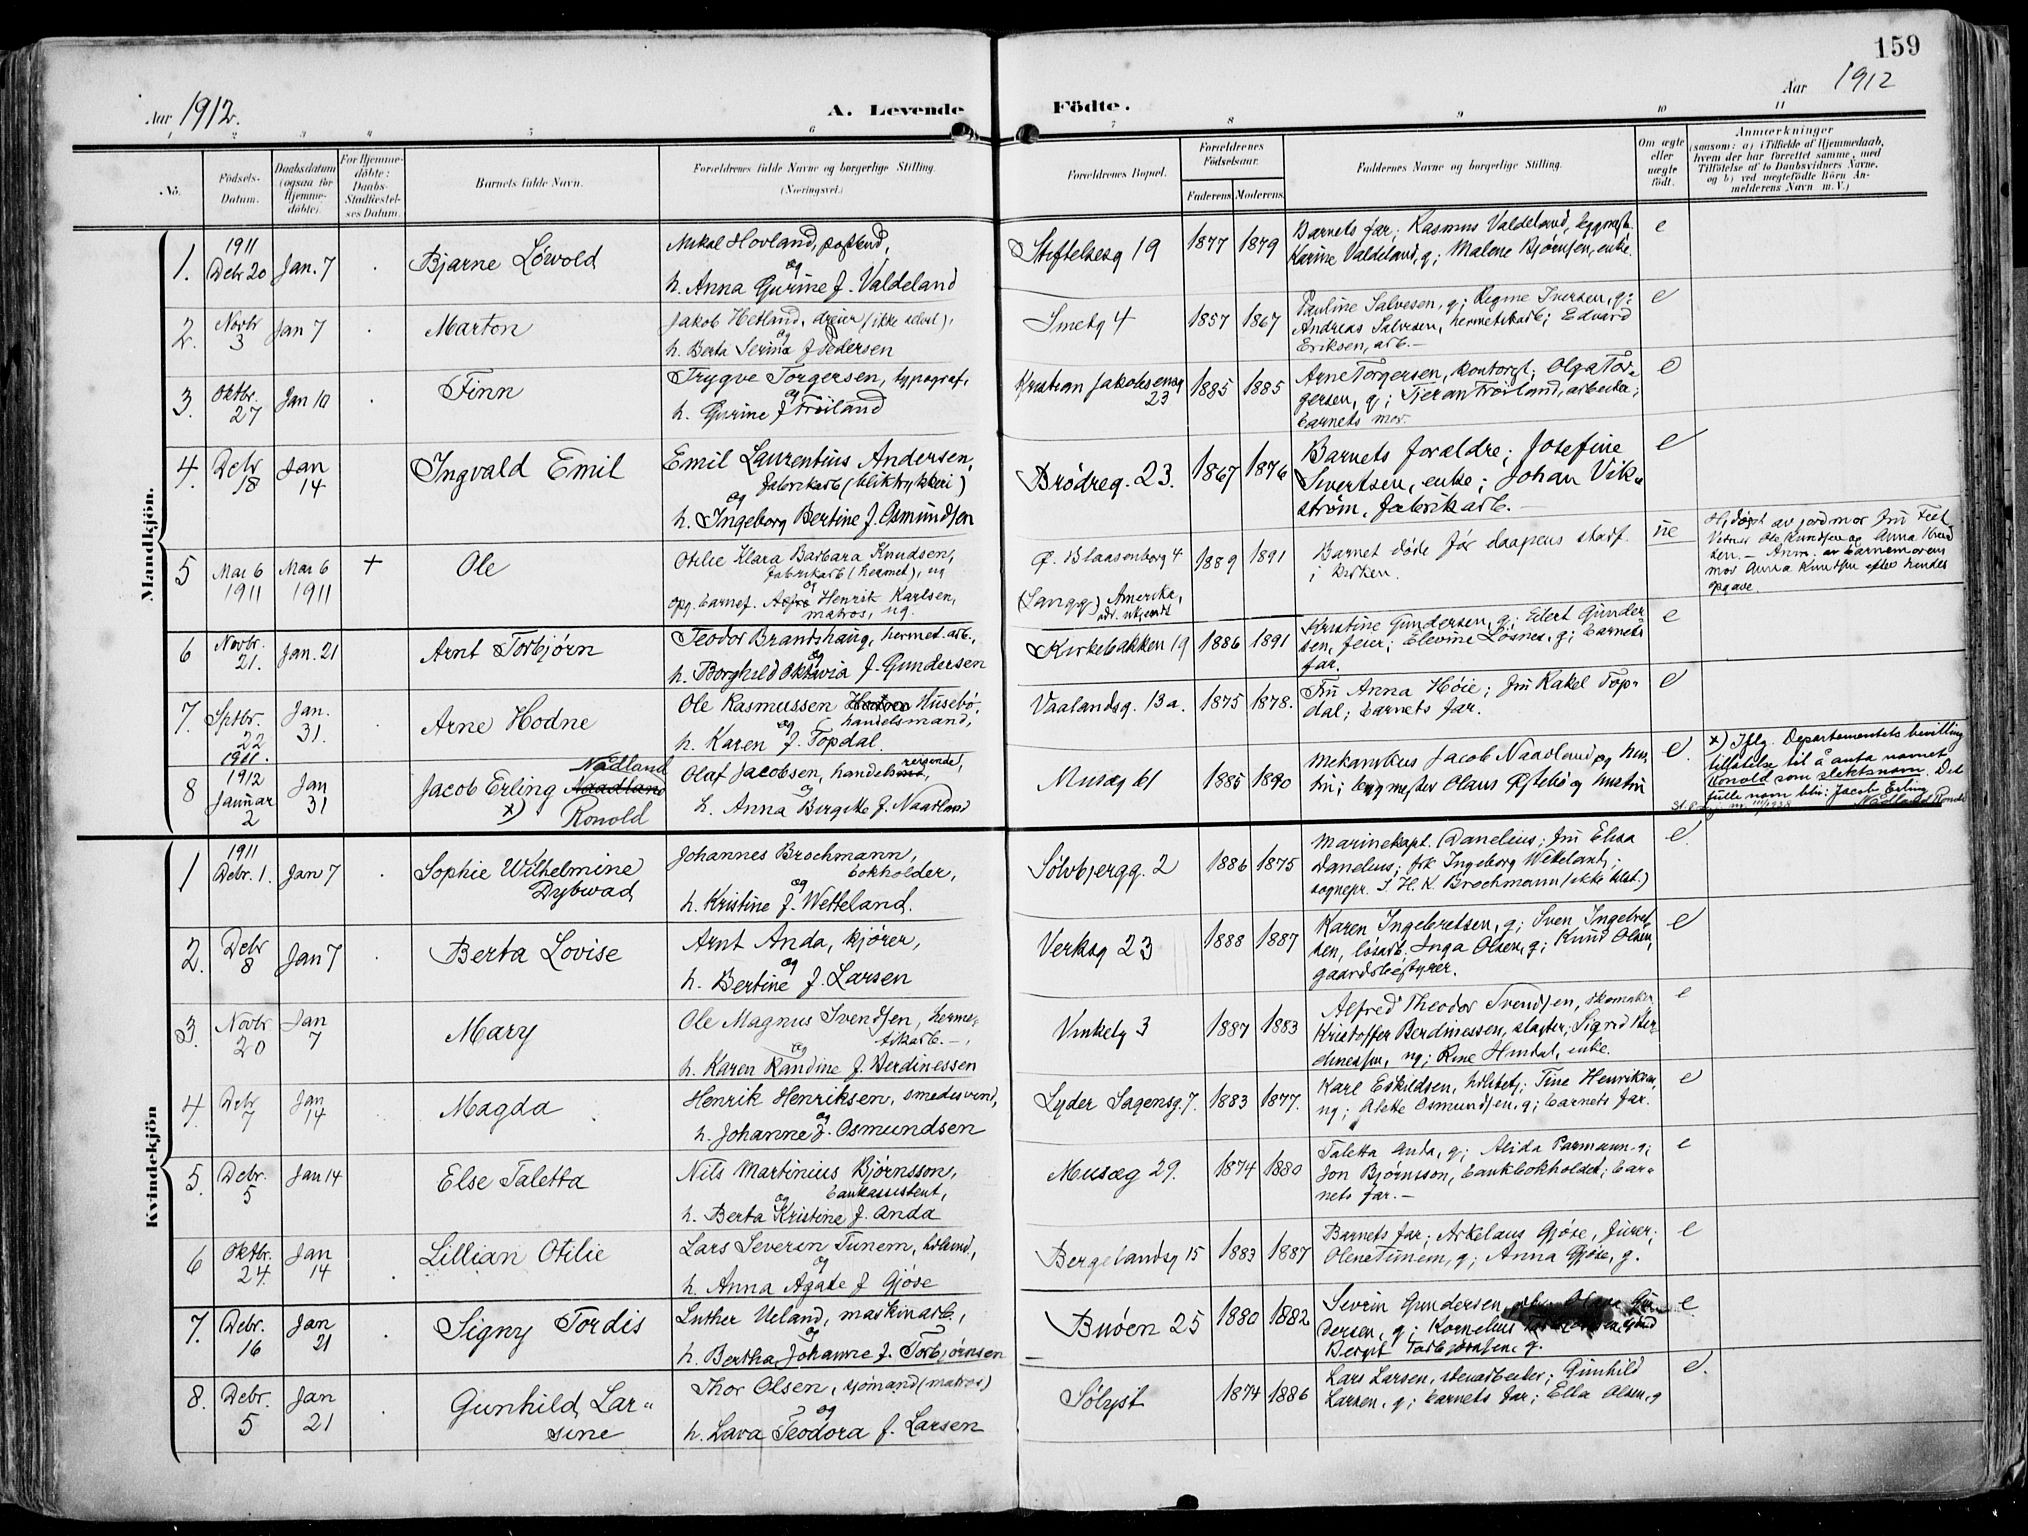 159
Aar 1912.
A. Levende Födte.
Aar 1912
1 2 3 4 5 6 7 8 9 10 11
No.
Födsels-Datum.
Daabsdatum (ogsaa for Hjemmedöbte).
For Hjemmedöbte: Daabs-Stadfæstelses Datum.
Barnets fulde Navn.
Forældrenes fulde Navne og borgerlige Stilling. (Næringsvei.)
Forældrenes Bopæl.
Forældrenes Födselsaar.
Faderens. Moderens.
Faddernes Navne og borgerlige Stilling.
Om ægte eller uægte födt.
Anmærkninger
(saasom: a) i Tilfælde af Hjemmedaab,
hvem der har forrettet samme, med
Tilföielse af to Daabsvidners Navne,
og b) ved uægtefödte Börn An-
melderens Navn m. V.)
Mandkjön.
1. 1911 Debr 20 Jan. 7 Bjarne Löwold
Mikal Hovland, postbud,
og
h. Anna Gurine f. Valdeland
Stiftelsesg 19 1877 1879
Barnets far; Rasmus Valdeland, byggmest.
Karine Valdeland, g; Malene Bjørnsen, enke.
e
2. Novbr 3 Jan 7 Marton
Jakob Hetland, dreier (ikke advl.),
og
h. Berta Serina f Pedersen
Smedg 4 1857 1867
Pauline Salvesen, g; Regine Iversen, g;
Andreas Salvesen, hermetikarb; Edvard
Eriksen, arb. –
e
3. Oktbr. 27 Jan 10 Finn
Trygve Torgersen, typograf,
og
h. Gurine f Frøiland
Kristian Jakobsensg 23 1885 1885
Arne Torgersen, kontorgt; Olga Tor-
gersen, g; Tjeran Frøiland, arbeider;
barnets mor.
e
4. Debr 18 Jan 14 Ingvald Emil
Emil Laurentius Andersen,
fabrikarb (bliktrykkeri)
og
h. Ingeborg Bertine f. Osmundsen
Brödreg. 23. 1867 1876
Barnets foræ­ldre; Josefine
Sivertsen, enke; Johan Vik-
strøm, fabrikarb. –
e
5 Mar 6 1911 Mar 6 1911 + Ole
Otilie Klara Barbara Knudsen,
fabrikarb (hermet), ug
og
opg. barnef. Alfre Henrik Karlsen,
matros, ug.
Ø. Blaasenborg 4
(Langg) Amerika,
adr. ukjendt
1889 1891
Barnet døde før daapens stadf.
i kirken.
ue
Hj.døpt av jordmor Fru
Vidner Ole Knudsen og Anna Knud
sen. – Anm. av barnemorens
mor Anna Knudsen efter hendes
opgave.
6 Novbr. 21. Jan. 21 Arnt Torbjørn
Teodor Brandshaug, hermet. arb.,
og
h. Borghild Oktavia f. Gundersen
Kirkebakken 19 1886 1891
Kristine Gundersen, g; Eilert Gunder
sen, feier; Elevine Løsnes, g; barnets
far.
e
7. Sptbr. 22 1911. Jan. 31. Arne Hodne
Ole Rasmussen Husebø,
handelsmand,
og
h. Karen f. Topdal.
Vaalandsg. 13 a. 1875 1878.
Fru Anna Høie; fru Rakel Top-
dal; barnets far.
e
8 1912 Januar 2 Jan 31 Jacob Erling Naadland
Nådland
x) Ronold
Olaf Jacobsen, handelsreisende,
og
h. Anna Birgitte f. Naadland
Musæg 61 1885 1890
Mekanikus Jacob Naadland og hus-
tru; bygmester Olaus Østebø og hustru
e.
x) Iflg. Departementets bevilling
tillatelse til å anta navnet
Ronold som slektsnavn. Det
fulle navn blir: Jacob Erling
Nådland Ronold
Kvindekjön
1 1911 Debr. 1. Jan 7 Sophie Wilhelmine
Dybwad
Johannes Brochmann,
bokholder,
og
h. Kristine f. Wetteland.
Sölvbjergg. 2 1886 1875
Marinekapt. Danelius; fru Elisa
Danelius; frk Ingeborg Wetteland;
sognepr. J. H. K. Brochmann (ikke tilst.)
e.
2. Debr 8 Jan 7 Berta Lovise
Arnt Anda, kjører,
og
h. Bertine f. Larsen
Verksg 23 1888 1887
Karen Ingebretsen, g; Sven Ingebret
sen, løsarb. Inga Olsen, g; Knud Olsen,
gaardsbestyrer.
e
3. Novbr 20 Jan 7 Mary
Ole Magnus Svendsen, herme-
tikarb. –,
og
h. Karen Randine f. Berdinessen
Vinkelg 3 1887 1883
Alfred Theodor Svendsen, skomaker,
Kristoffer Berdinessen, slagter; Sigrid Ber-
dinessen, ug; Rine Hindal, enke.
e
4. Debr 7 Jan 14 Magda
Henrik Henriksen, smedesvend,
og
h. Johanne f. Osmundsen
Lyder Sagensg. 7. 1883 1877.
Karl Eskildsen, ; Tine Henriksen,
ug; Osmundsen, g; barnets far.
e
5. Debr. 5 Jan 14 Else Taletta
Nils Martinius Bjørnsson,
bankassistent,
og
h. Berta Kristine f. Anda
Musæg 29. 1874 1880
Taletta Anda, g; Alida Parmann, g;
Jon Bjørnsson, bankbokholder; bar-
nets far. –
e
6 Oktbr. 24. Jan 14 Lillian Otilie
Lars Severin Tunem,
og
h. Anna Agate f Gjøse
Bergelandsg 15 1883 1887
Barnets far; Arkelaus Gjøse, furer;
Olene Tunem, g; Anna Gjøse, g.
e
7. Debr. 16 Jan 21 Signy Tordis
Luther Ueland, maskinarb.,
og
h. Bertha Johanne f. Torbjørnsen
Buøen 25 1880 1882
Sevrin Gundersen, Gun
dersen, g; Kornelius
Bergit Torbjørnsen, g.
e
8. Debr. 5 Jan 21 Gunhild Lar-
sine
Thor Olsen, sjømand (matros)
og
h. Lava Teodora f. Larsen
Sølyst 1874 1886
Lars Larsen, stenarbeider; Gunhild
Larsen, g; barnets far; Ella Olsen, g
e.